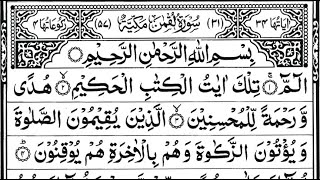 اٰیَاتُهَا ۳۴ (۳۱) سُوْرَةُ لُقْمٰنَ مَكِّیَّةٌ (۵۷) رُكُوْعَاتُهَا ۴
بِسْمِ اللّٰهِ الرَّحْمٰنِ الرَّحِیْمِ
الٓمّٓ ۚ تِلْكَ اٰیٰتُ الْكِتٰبِ الْحَكِیْمِ ۙ هُدًی
وَّ رَحْمَةً لِّلْمُحْسِنِیْنَ ۙ الَّذِیْنَ یُقِیْمُوْنَ الصَّلٰوةَ
وَ یُؤْتُوْنَ الزَّكٰوةَ وَ هُمْ بِالْاٰخِرَةِ هُمْ یُوْقِنُوْنَ ؕ